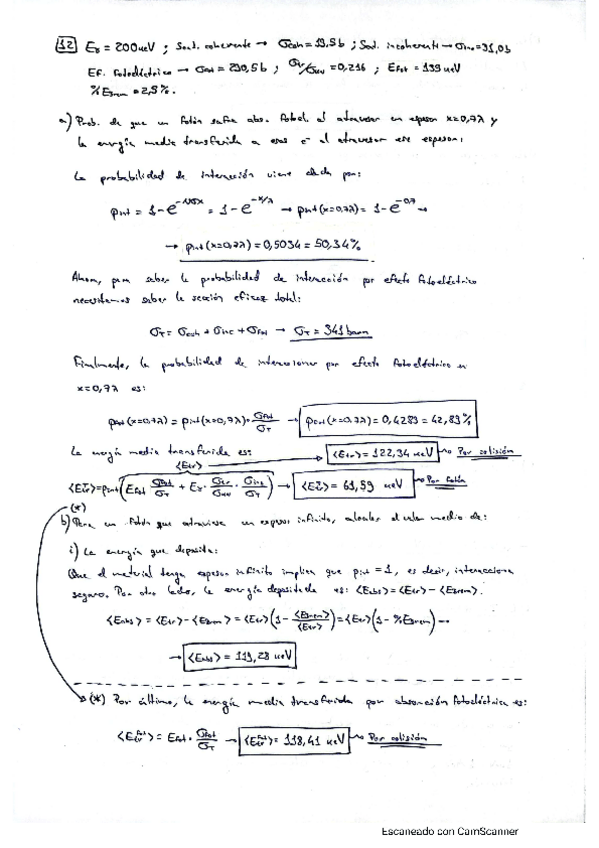 12 Eγ = 200 keV ; Scat. coherente → σcoh = 19,5 b ; Scat. incoherente → σinc = 31,0 b
Ef. fotoeléctrico → σfot = 290,5 b ; σtr/σinc = 0,216 ; Efot = 139 keV
% Ebrem = 2,5%.
a) Prob. de que un fotón sufra abs. fotoel. al atravesar un espesor x=0,7λ y
la energía media transferida a esos e⁻ al atravesar ese espesor:
La probabilidad de interacción viene dada por:
pint = 1-e^-Nσx = 1-e^-x/λ → pint(x=0,7λ) = 1-e^-0,7 →
→ pint(x=0,7λ) = 0,5034 = 50,34%
Ahora, para saber la probabilidad de interacción por efecto fotoeléctrico
necesitamos saber la sección eficaz total:
σT = σcoh + σinc + σfot → σT = 341 barn
Finalmente, la probabilidad de interaccionar por efecto fotoeléctrico en
x=0,7λ es:
pfot(x=0,7λ) = pint(x=0,7λ)·σfot/σT → pfot(x=0,7λ) = 0,4289 = 42,89%
La energía media transferida es: <Etr> → <Etr> = 122,34 keV → Por colisión
<Etr> = pint (Efot σfot/σT + Eγ · σtr/σinc · σinc/σT) → <Etr> = 61,59 keV → Por fotón
(*)
b) Para un fotón que atraviesa un espesor infinito, calcular el valor medio de:
i) La energía que deposita:
Que el material tenga espesor infinito implica que pint = 1, es decir, interacciona
seguro. Por otro lado, la energía depositada es: <Eabs> = <Etr> - <Ebrem>.
<Eabs> = <Etr> - <Ebrem> = <Etr>(1 - <Ebrem>/<Etr>) = <Etr>(1 - %Ebrem) →
→ <Eabs> = 119,28 keV
(*) Por último, la energía media transferida por absorción fotoeléctrica es:
<Etr^fot> = Efot · σfot/σT → <Etr^fot> = 118,41 keV → Por colisión
Escaneado con CamScanner